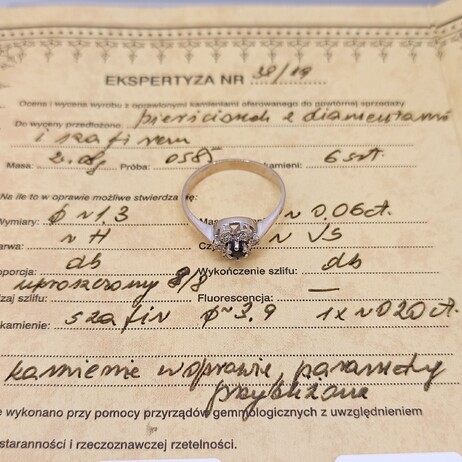 EKSPERTYZA NR 38/19
Ocena i wycena wyrobu z oprawionymi kamieniami oferowanego do powtórnej sprzedaży
Do wyceny przedłożono: pierścionek z diamentami
i szafirem
Masa: 2.0g Próba: 0585 kamieni: 6 szt.
Na ile to w oprawie możliwe stwierdza się:
Wymiary: φ ~ 1,3 Mas ~ 0.06ct.
arwa: ~ H Cz ~ VS
oporcja: db Wykończenie szlifu: db
zaj szlifu: uproszczony 8/8 Fluorescencja: —
kamienie: szafir φ ~ 3,9 1x ~ 0,20 ct.
kamienie w oprawie, parametry
przybliżone
e wykonano przy pomocy przyrządów gemmologicznych z uwzględnieniem
staranności i rzeczoznawczej rzetelności.